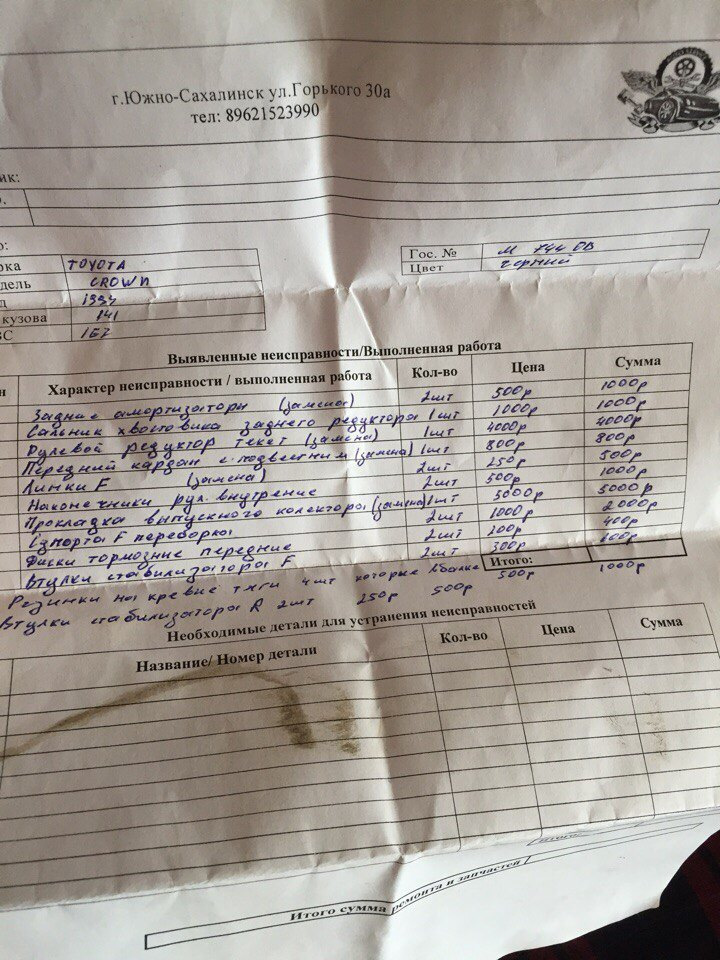 г.Южно-Сахалинск ул.Горького 30а
тел: 89621523990
ик:
о:
рка TOYOTA
дель CROWN
д 1997
кузова 141
ВС 1GZ
Гос. № М 744 ОВ
Цвет черный
Выявленные неисправности/Выполненная работа
н Характер неисправности / выполненная работа Кол-во Цена Сумма
Задние амортизаторы (замена) 2шт 500р 1000р
Сальник хвостовика заднего редуктора 1шт 1000р 1000р
Рулевой редуктор текет (замена) 1шт 4000р 4000р
Передний кардан с подвестним (замена) 1шт 800р 800р
Линки F (замена) 2шт 250р 500р
Наконечники рул. внутрение 2шт 500р 1000р
Прокладка выпускного колектора (замена) 1шт 5000р 5000р
Supporta F переборка 2шт 1000р 2000р
Диски тормозние передние 2шт 200р 400р
Втулки стабилизатора F 2шт 300р 600р
Итого:
Резинки на тяги 4шт которые 500р 1000р
Втулки стабилизатора R 2шт 250р 500р
Необходимые детали для устранения неисправностей
Название/ Номер детали Кол-во Цена Сумма
Итого:
Итого сумма ремонта и запчастей